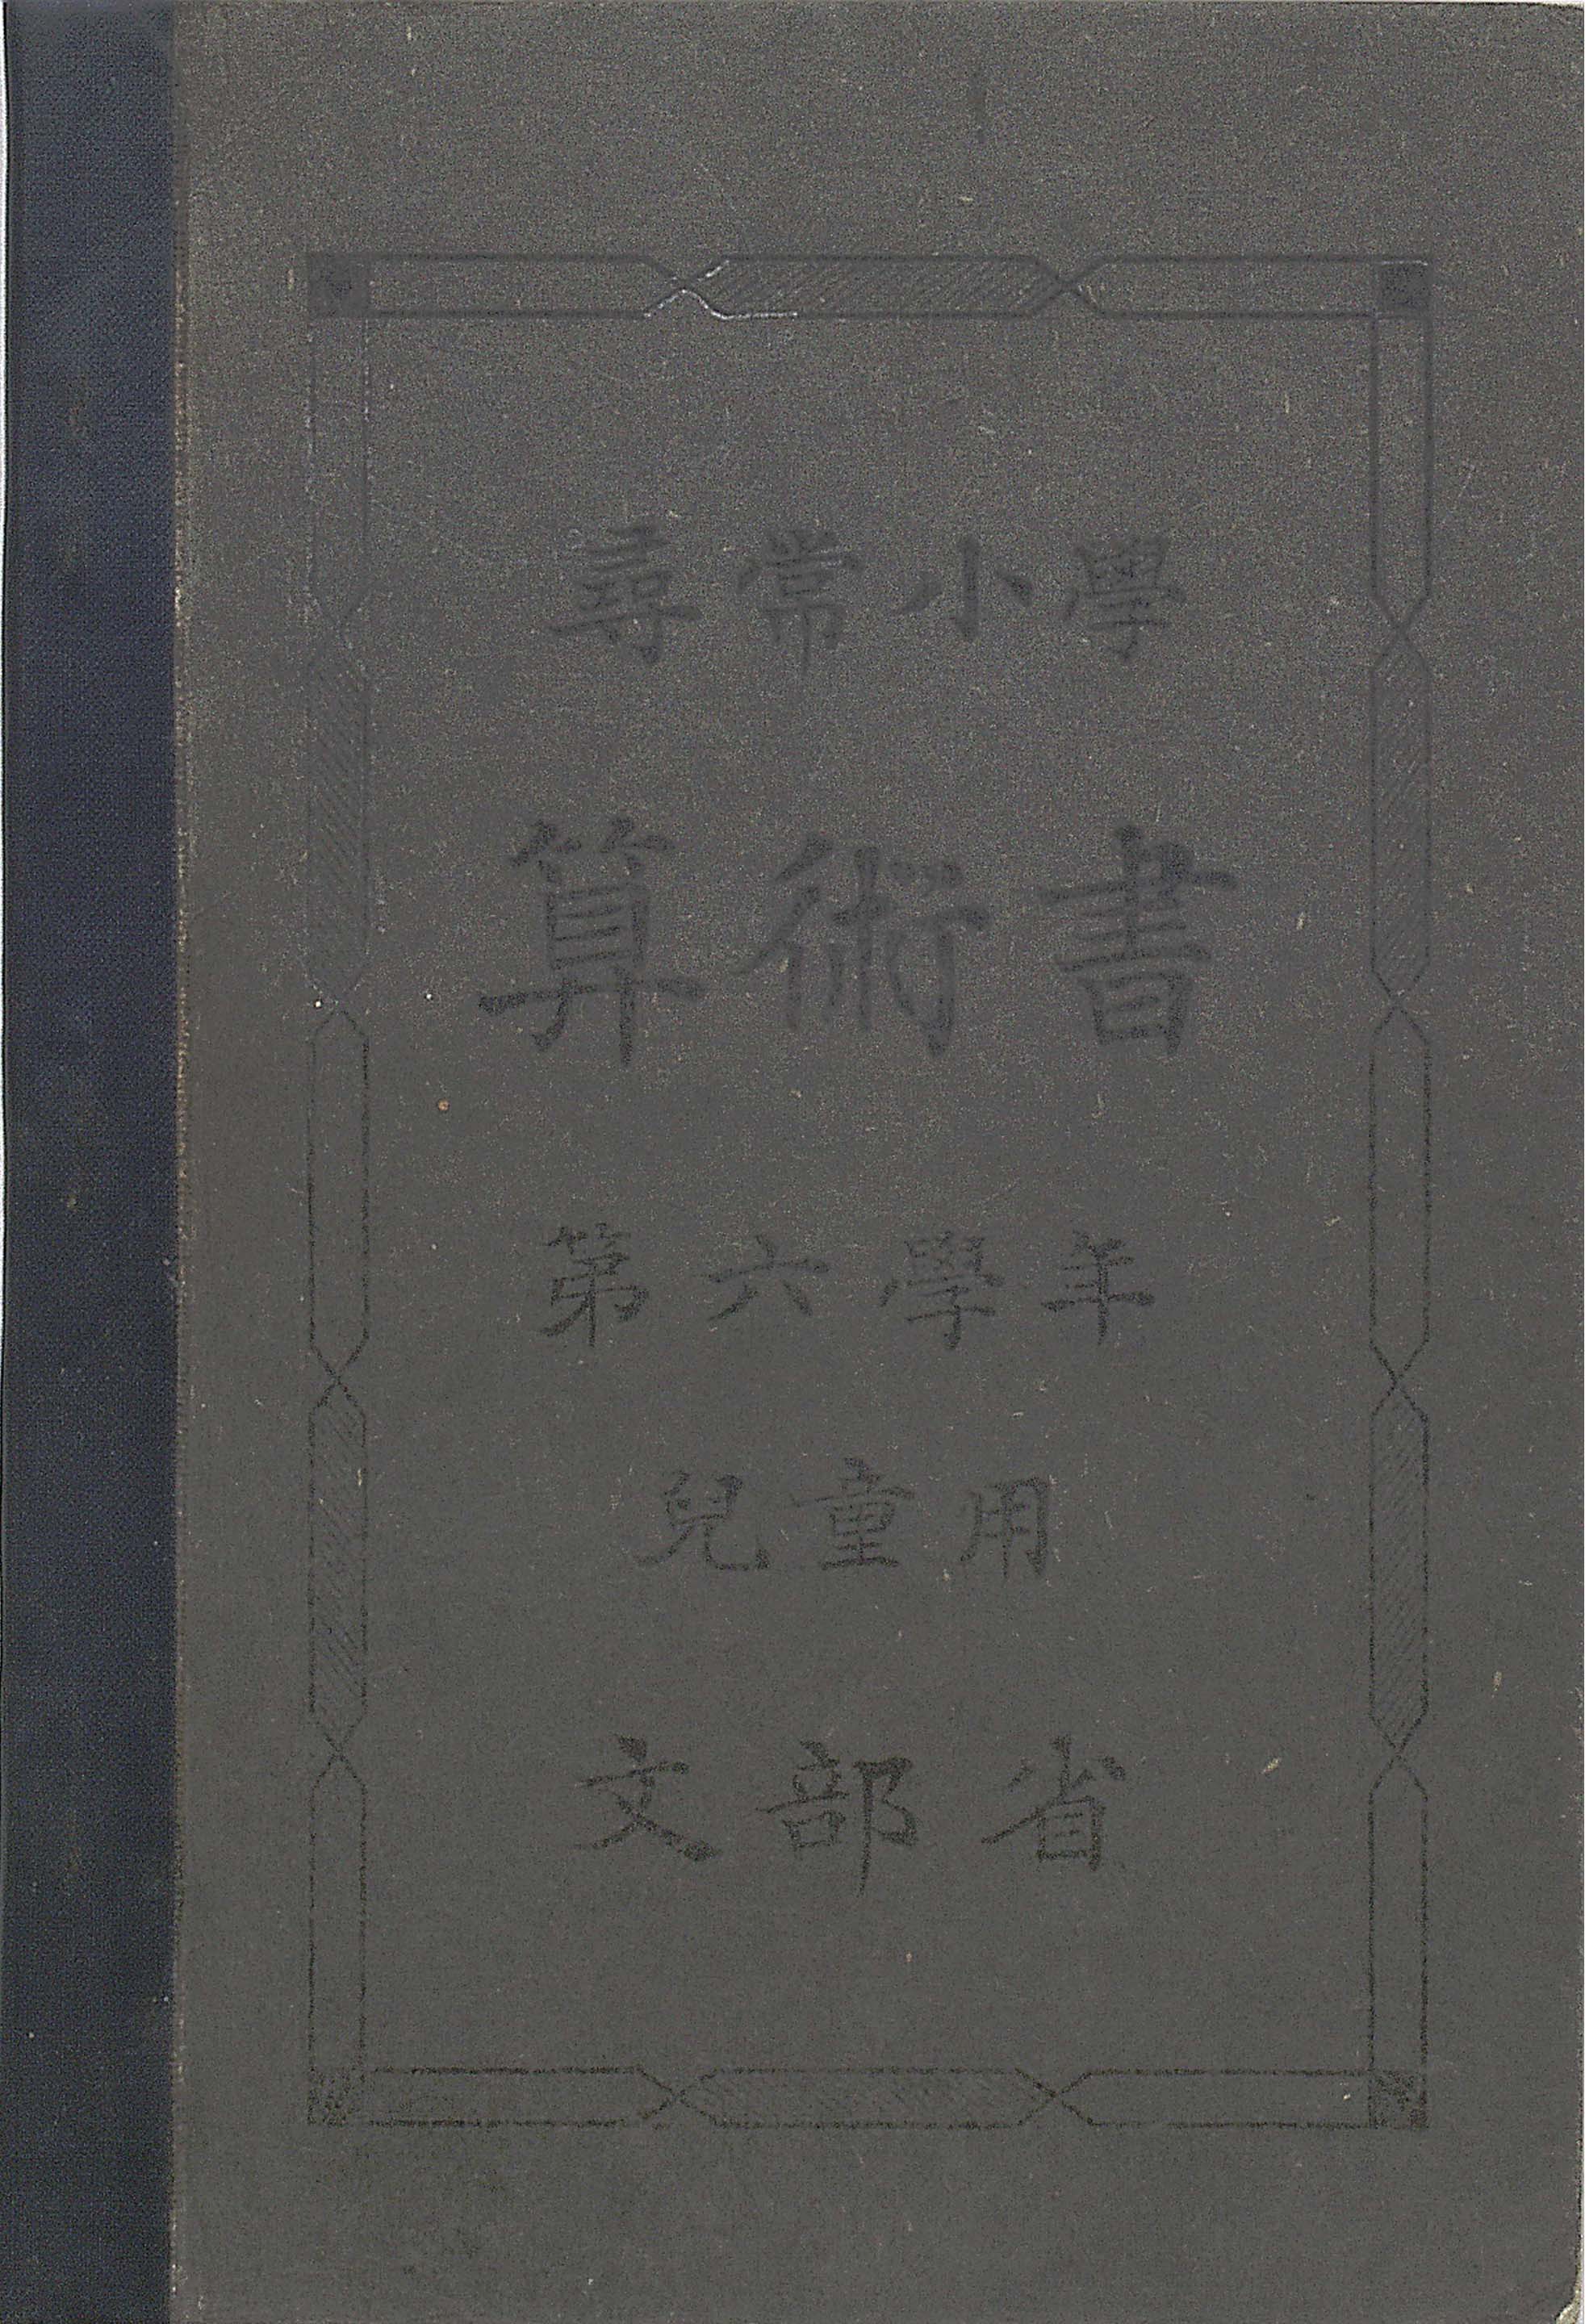 尋常小學
算術書
第六學年
兒童用
文部省